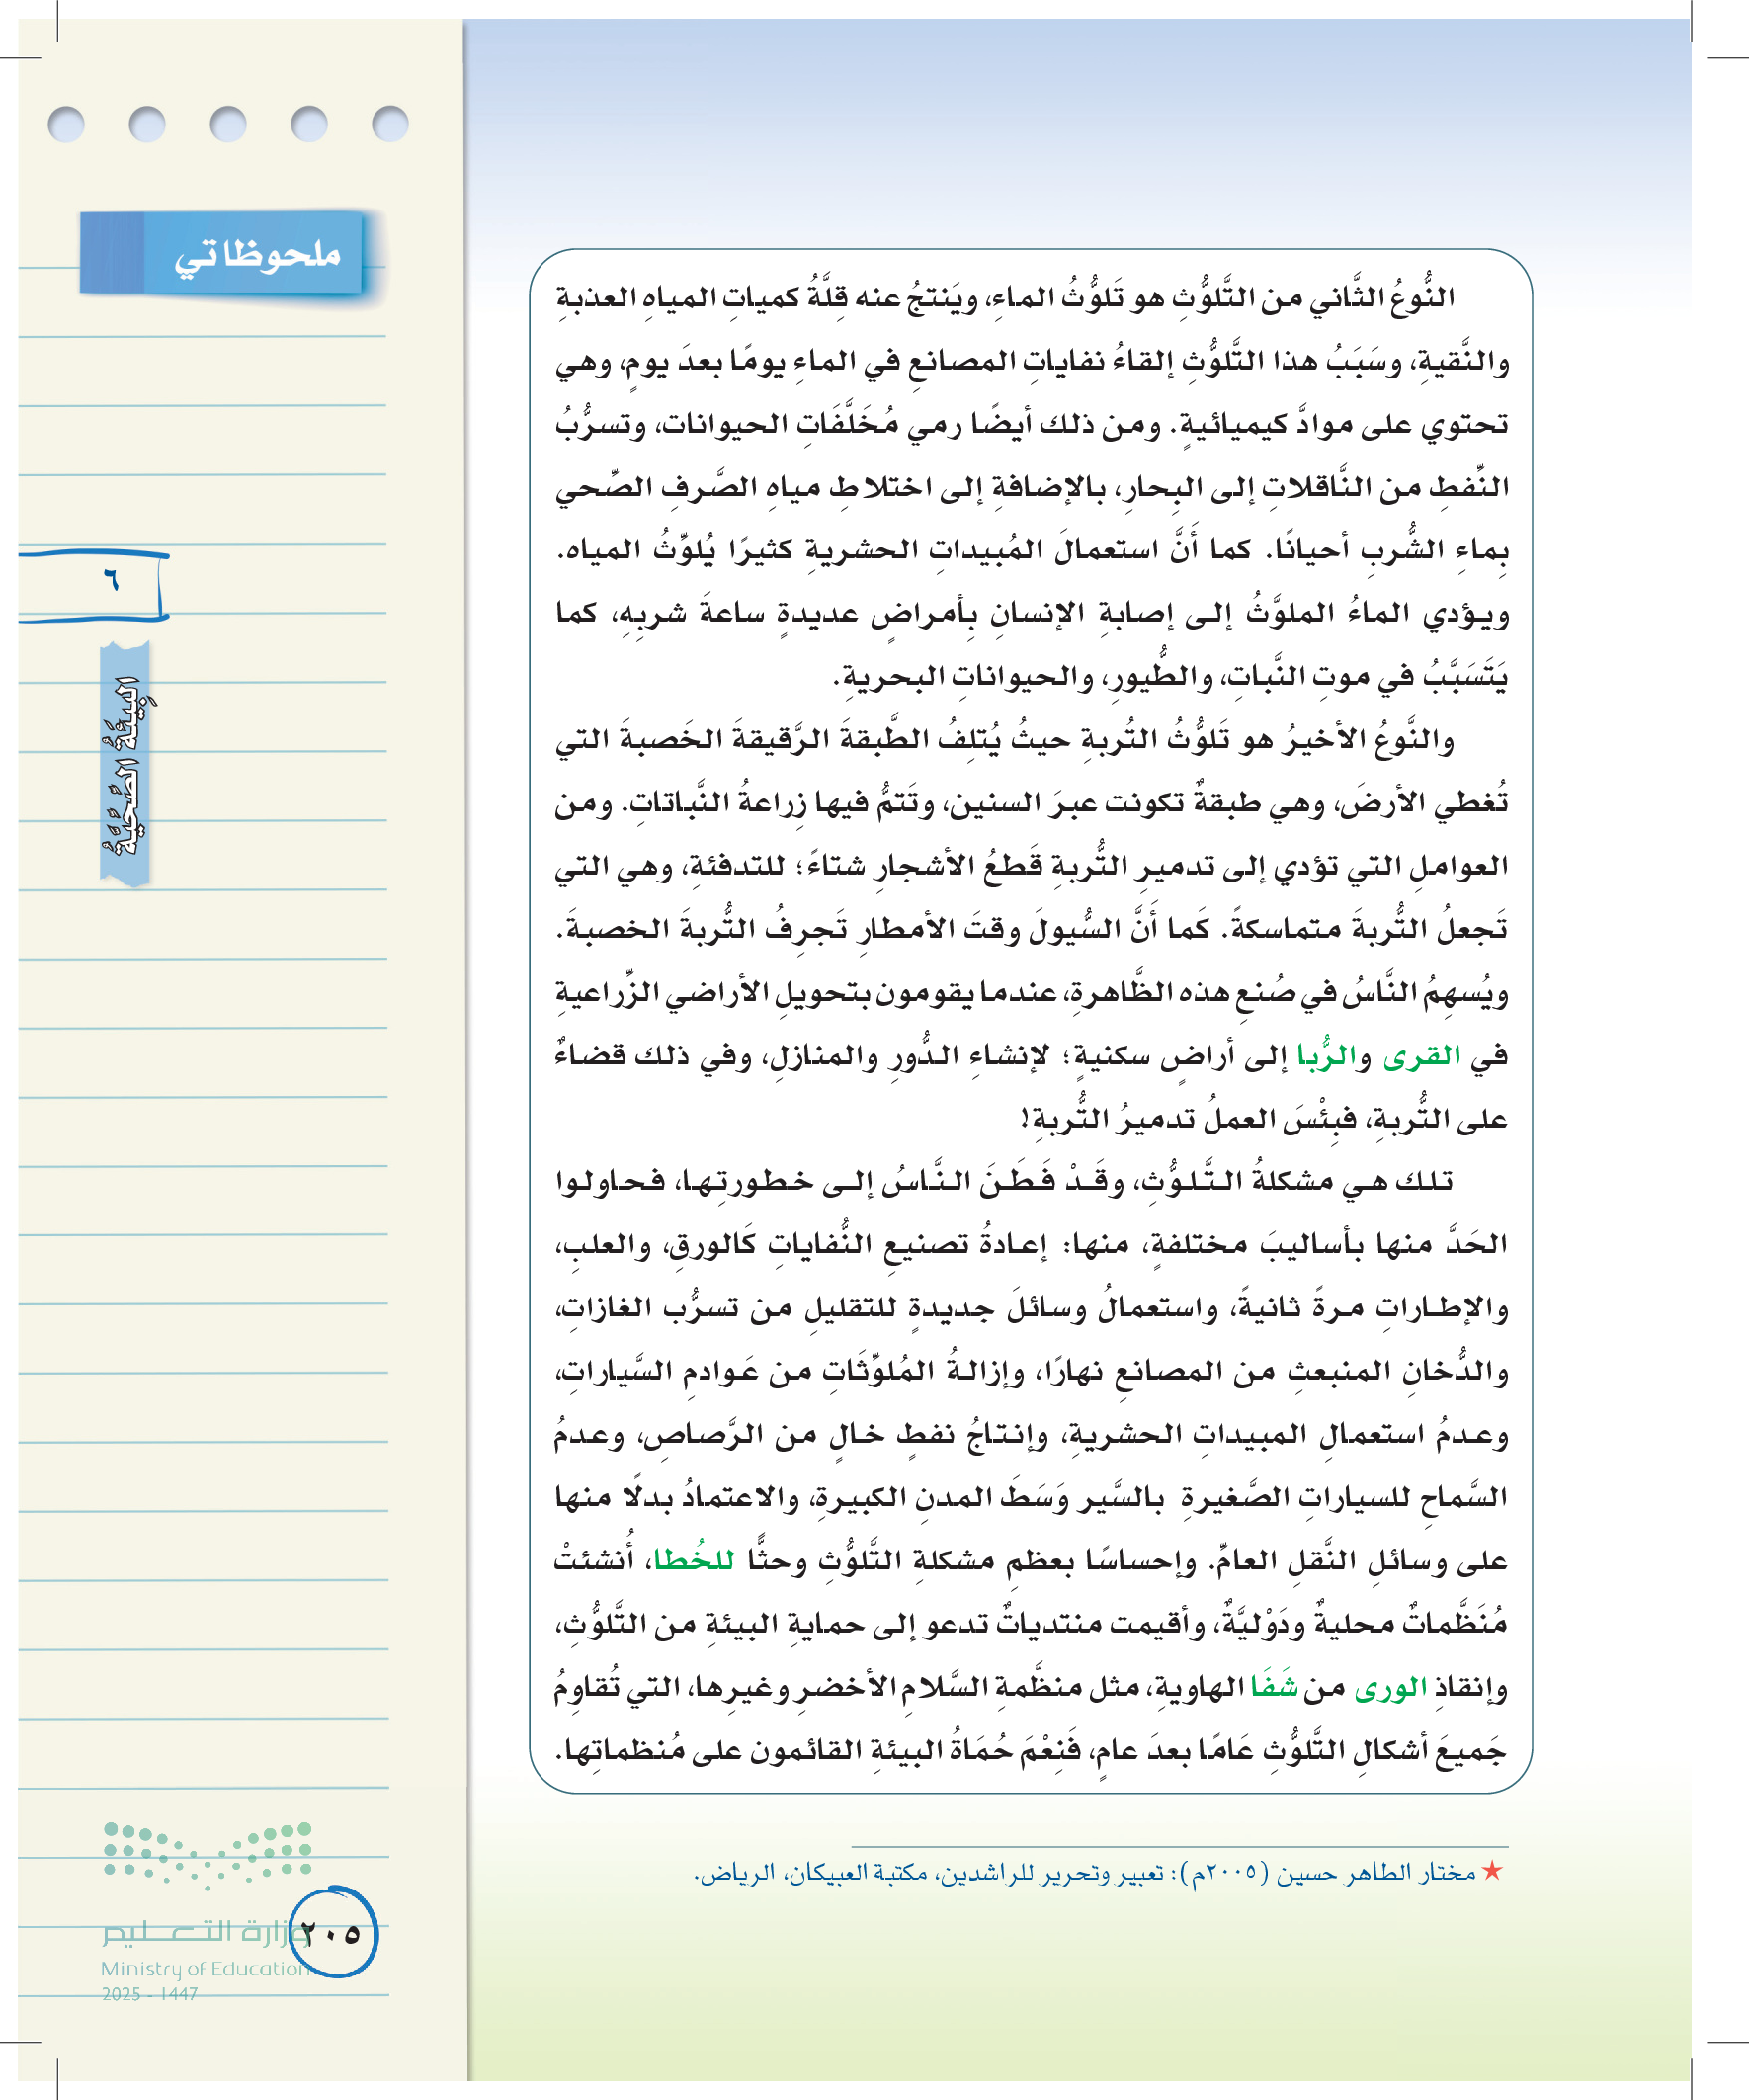 ملحوظاتي
٦
البِيئَةُ الصِّحِّيَّةُ
النُّوعُ الثَّاني من التَّلوُّثِ هو تَلوُّثُ الماءِ، ويَنتجُ عنه قِلَّةُ كمياتِ المياهِ العذبةِ
والنَّقيةِ، وسَبَبُ هذا التَّلوُّثِ إلقاءُ نفاياتِ المصانعِ في الماءِ يومًا بعدَ يومٍ، وهي
تحتوي على موادَّ كيميائيةٍ. ومن ذلك أيضًا رمي مُخَلَّفَاتِ الحيوانات، وتسرُّبُ
النِّفطِ من النَّاقلاتِ إلى البِحارِ، بالإضافةِ إلى اختلاطِ مياهِ الصَّرفِ الصِّحي
بِماءِ الشُّربِ أحيانًا. كما أَنَّ استعمالَ المُبيداتِ الحشريةِ كثيرًا يُلوِّثُ المياه.
ويؤدي الماءُ الملوَّثُ إلى إصابةِ الإنسانِ بِأمراضٍ عديدةٍ ساعةَ شربِهِ، كما
يَتَسَبَّبُ في موتِ النَّباتِ، والطُّيورِ، والحيواناتِ البحريةِ.
والنَّوعُ الأخيرُ هو تَلوُّثُ التُربةِ حيثُ يُتلِفُ الطَّبقةَ الرَّقيقةَ الخَصبةَ التي
تُغطي الأرضَ، وهي طبقةٌ تكونت عبرَ السنين، وتَتمُّ فيها زِراعةُ النَّباتاتِ. ومن
العواملِ التي تؤدي إلى تدميرِ التُّربةِ قَطعُ الأشجارِ شتاءً؛ للتدفئةِ، وهي التي
تَجعلُ التُّربةَ متماسكةً. كَما أَنَّ السُّيولَ وقتَ الأمطارِ تَجرِفُ التُّربةَ الخصبةَ.
ويُسهِمُ النَّاسُ في صُنعِ هذه الظَّاهرةِ، عندما يقومون بتحويلِ الأراضي الزِّراعيةِ
في القرى والرُّبا إلى أراضٍ سكنيةٍ؛ لإنشاءِ الدُّورِ والمنازلِ، وفي ذلك قضاءٌ
على التُّربةِ، فبِئْسَ العملُ تدميرُ التُّربةِ!
تلك هي مشكلةُ التَّلوُّثِ، وقَدْ فَطَنَ النَّاسُ إلى خطورتِها، فحاولوا
الحَدَّ منها بأساليبَ مختلفةٍ، منها: إعادةُ تصنيعِ النُّفاياتِ كَالورقِ، والعلبِ،
والإطاراتِ مرةً ثانيةً، واستعمالُ وسائلَ جديدةٍ للتقليلِ من تسرُّب الغازاتِ،
والدُّخانِ المنبعثِ من المصانعِ نهارًا، وإزالةُ المُلوِّثَاتِ من عَوادمِ السَّياراتِ،
وعدمُ استعمالِ المبيداتِ الحشريةِ، وإنتاجُ نفطٍ خالٍ من الرَّصاصِ، وعدمُ
السَّماحِ للسياراتِ الصَّغيرةِ بالسَّيرِ وَسَطَ المدنِ الكبيرةِ، والاعتمادُ بدلًا منها
على وسائلِ النَّقلِ العامِّ. وإحساسًا بعظمِ مشكلةِ التَّلوُّثِ وحثًّا للخُطا، أُنشئتْ
مُنَظَّماتٌ محليةٌ ودَوْليَّةٌ، وأقيمت منتدياتٌ تدعو إلى حمايةِ البيئةِ من التَّلوُّثِ،
وإنقاذِ الورى من شَفَا الهاويةِ، مثل منظَّمةِ السَّلامِ الأخضرِ وغيرِها، التي تُقاوِمُ
جَميعَ أشكالِ التَّلوُّثِ عَامًا بعدَ عامٍ، فَنِعْمَ حُمَاةُ البيئةِ القائمون على مُنظماتِها.
★ مختار الطاهر حسين (٢٠٠٥م): تعبير وتحرير للراشدين، مكتبة العبيكان، الرياض.
وزارة التعليم
٢٠٥
Ministry of Education
2025 - 1447